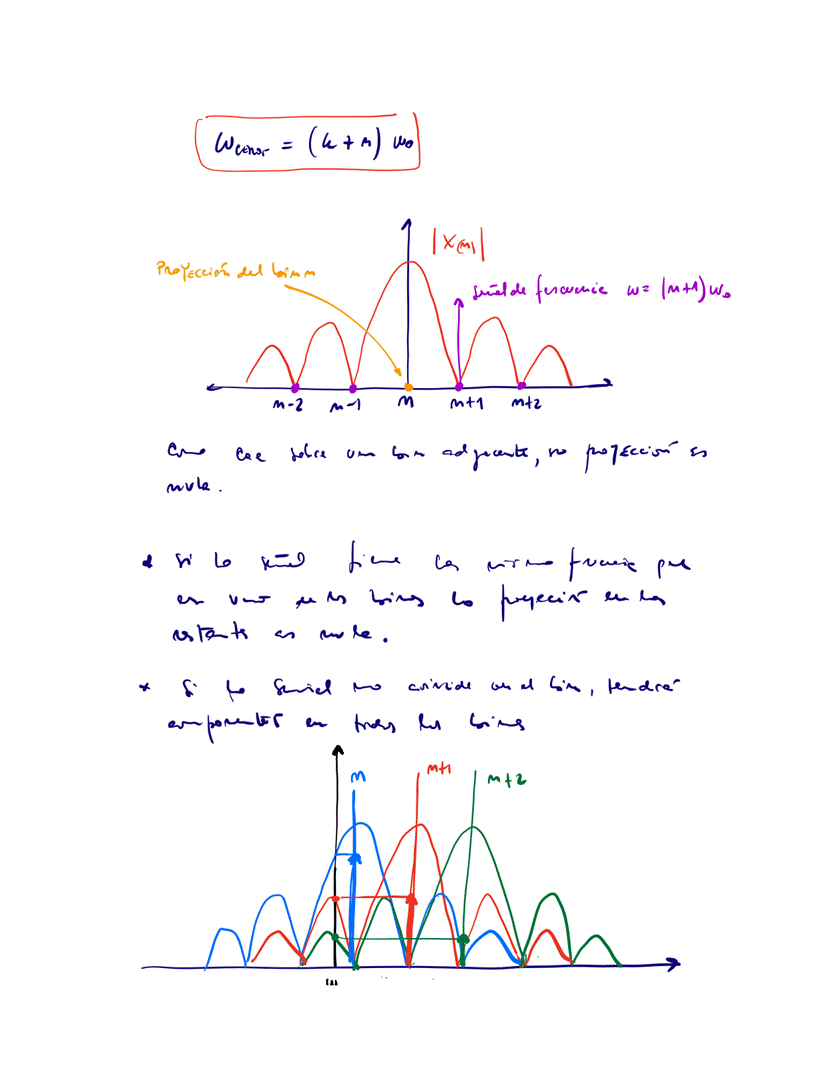 ω_ceros = (k + n) ω₀
|X(n)|
Proyección del bin n
señal de frecuencia ω = (n+1) ω₀
n-2 n-1 n n+1 n+2
Como cae sobre un bin adyacente, su proyección es
nula.
* Si la señal tiene la misma frecuencia que
en uno de los bines la proyección en los
restantes es nula.
* Si la señal no coincide en el bin, tendrá
componentes en todos los bines
n n+1 n+2